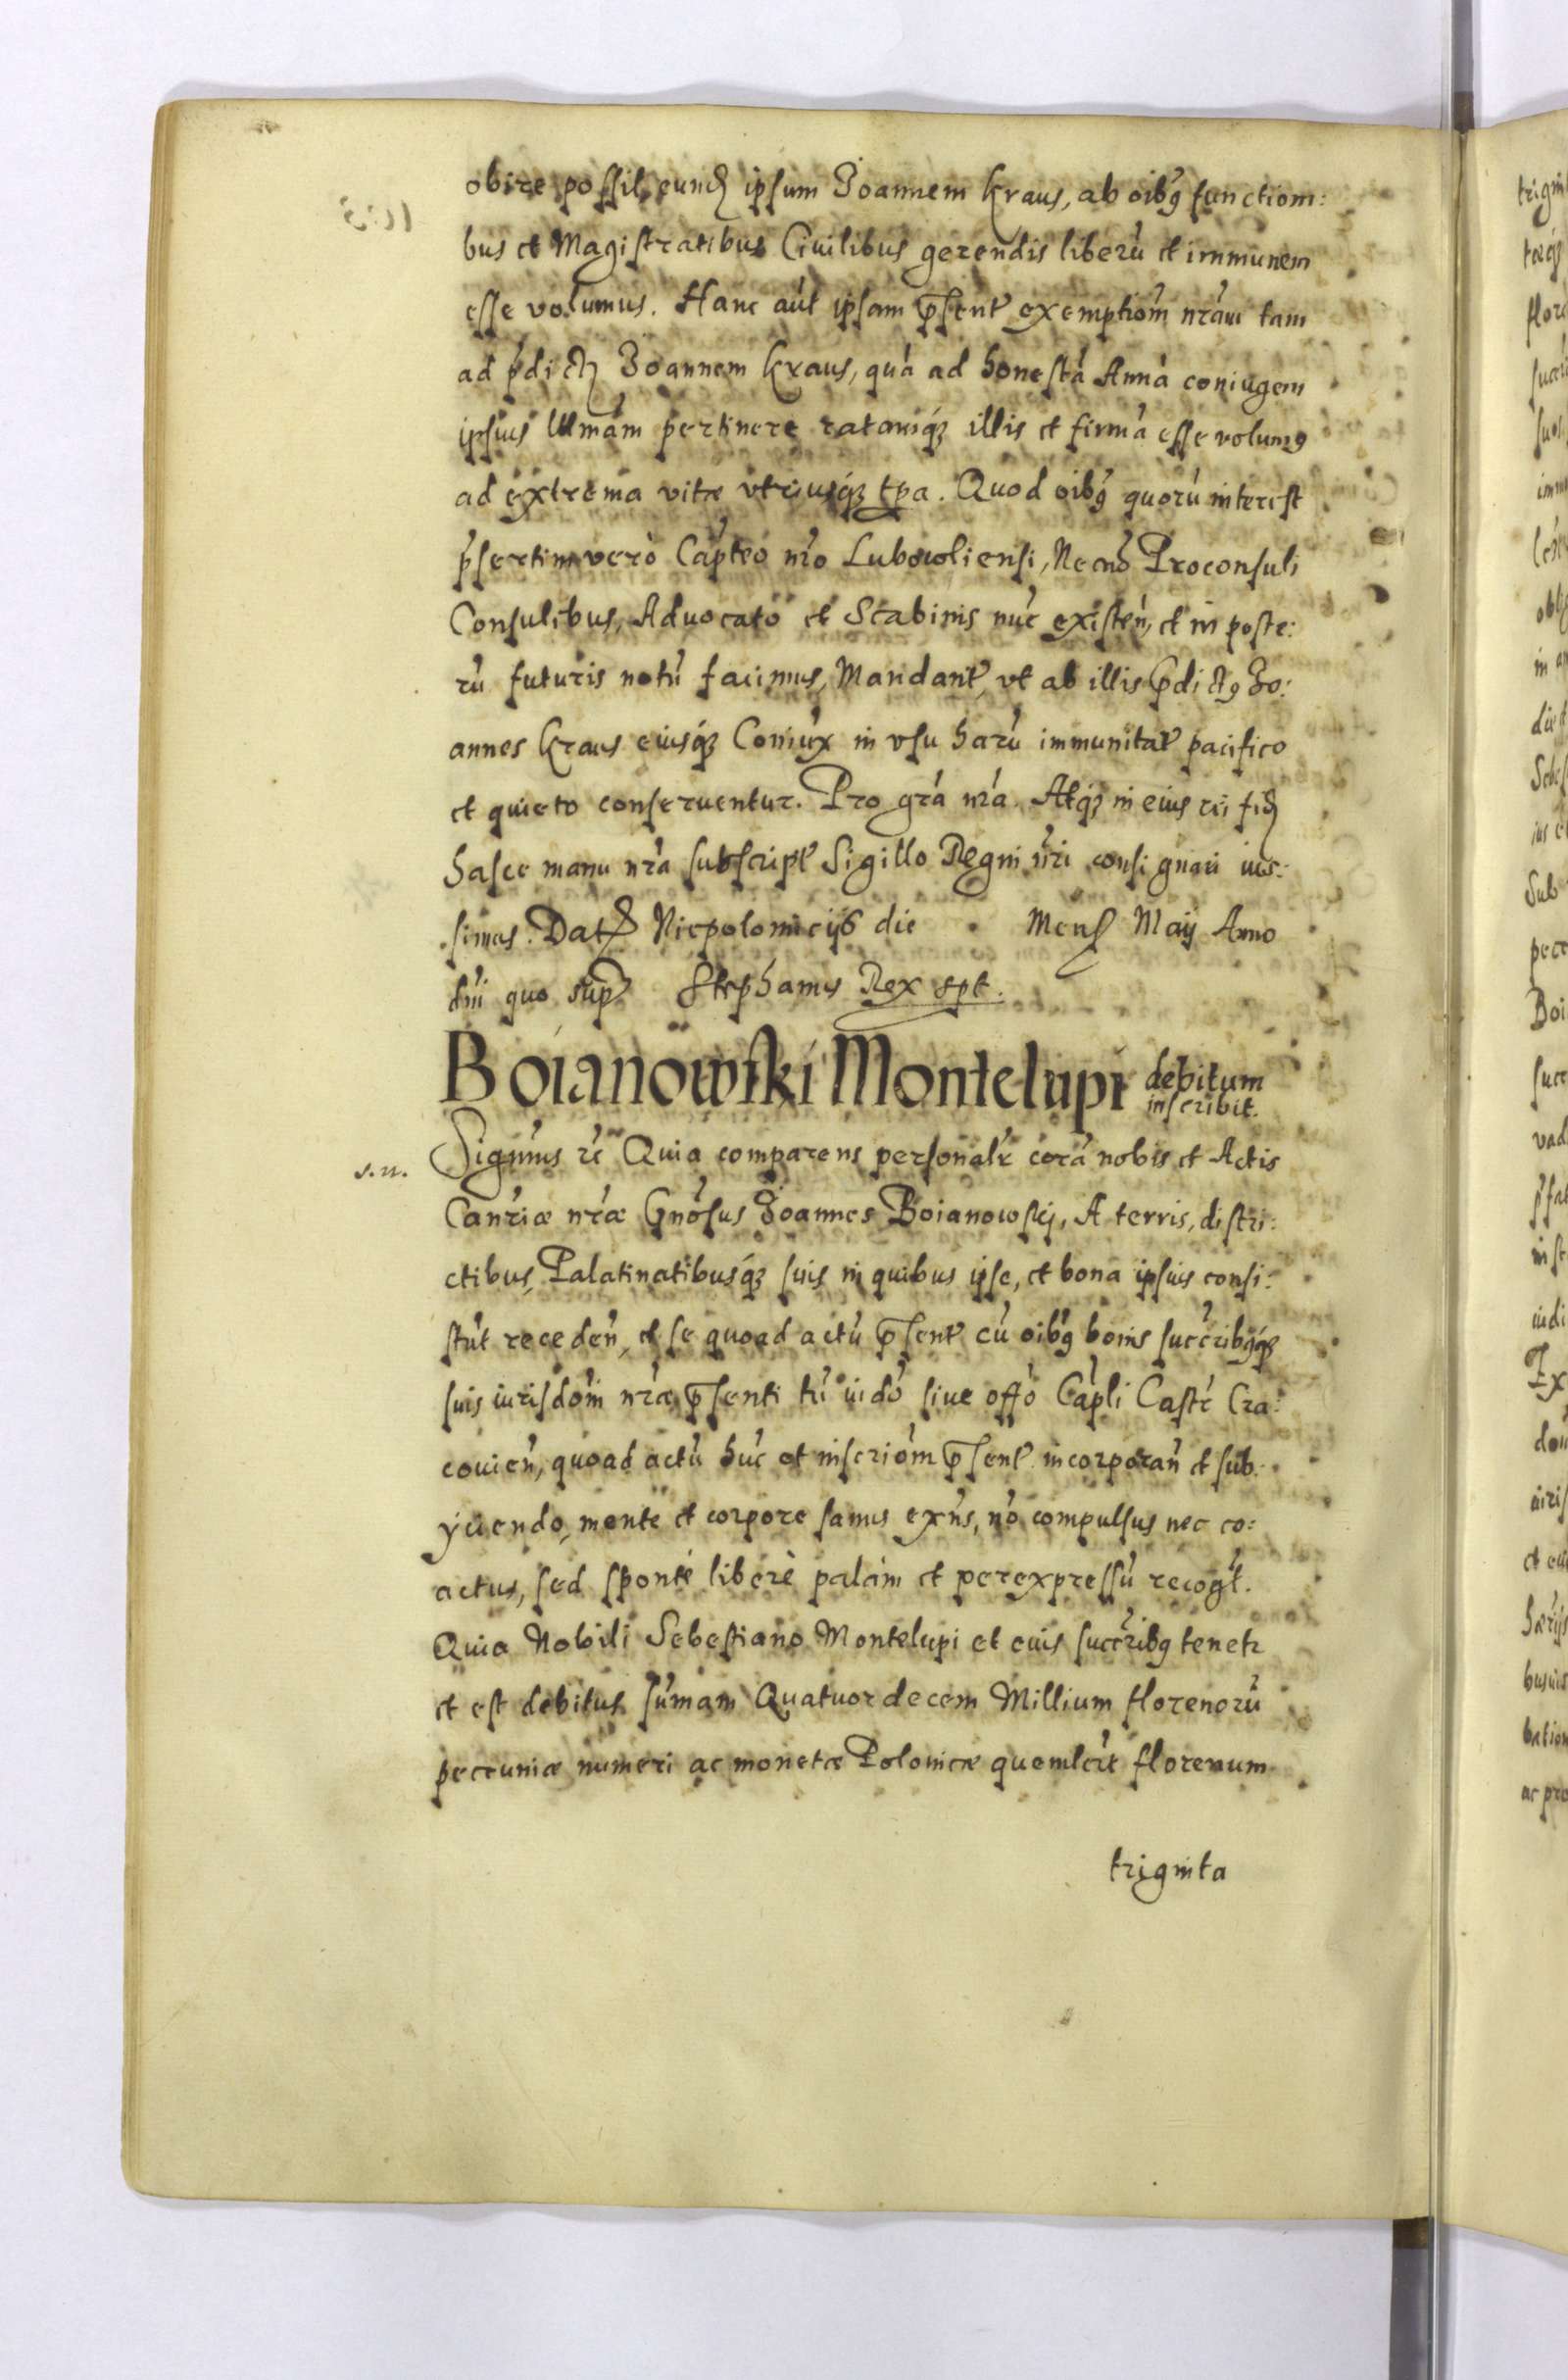 obire possit, eund ipsum Joannem Kraus, ab oibg functioni:
bus et Magistratibus Ciuilibus gerendis liberũ et immunem
esse volumus. Hanc aut ipsam psent exemptiom nram tam
ad pdict Joannem Kraus, quã ad honestã Annã coniugem
ipsius pertinere ratamq illis et firmã esse volumg
ad extrema vitæ vtriusq tpa. Quod oibg quorũ interest
psertim verò Capteo nro Lubowliensi, Necnõ Proconsuli
Consulibus, Aduocato et Scabinis nuc existen, et in poste:
rũ futuris notũ facimus, Mandant, vt ab illis pdictg Jo:
annes Kraus eiusq Coniux in vsu harũ immunitat pacifico
et quieto conseruentur. Pro grã nrã. Atq in eius rei fid
hasce manu nrã subscript Sigillo Regni nri consignari ius:
simus. Dat Niepolomicijs die Mens Maij Anno
dni quo sup Stephanus Rex spt.
Boianowski Montelupi debitum
inscribit.
s. n. Signmus rc Quia comparens personalr corã nobis et Actis
Canriæ nræ Gnosus Joannes Boianowskj, A terris, distri:
ctibus, Palatinatibusq suis in quibus ipse, et bona ipsius consi:
stũt receden, et se quoad actũ psent cũ oibg bonis succribgq
suis iurisdom nræ psenti tũ iudo siue offo Capli Castr Cra:
couien, quoad actũ huc et inscriom psent incorporan et sub:
ijciendo, mente et corpore sanus exns, nõ compulsus nec co:
actus, sed sponte liberè palam et per expressũ recogt.
Quia Nobili Sebestiano Montelupi et euis succribg tenetr
et est debitus sumam Quatuordecem Millium florenorũ
peccuniæ numeri ac monetæ Polonicæ quemlet florenum
triginta